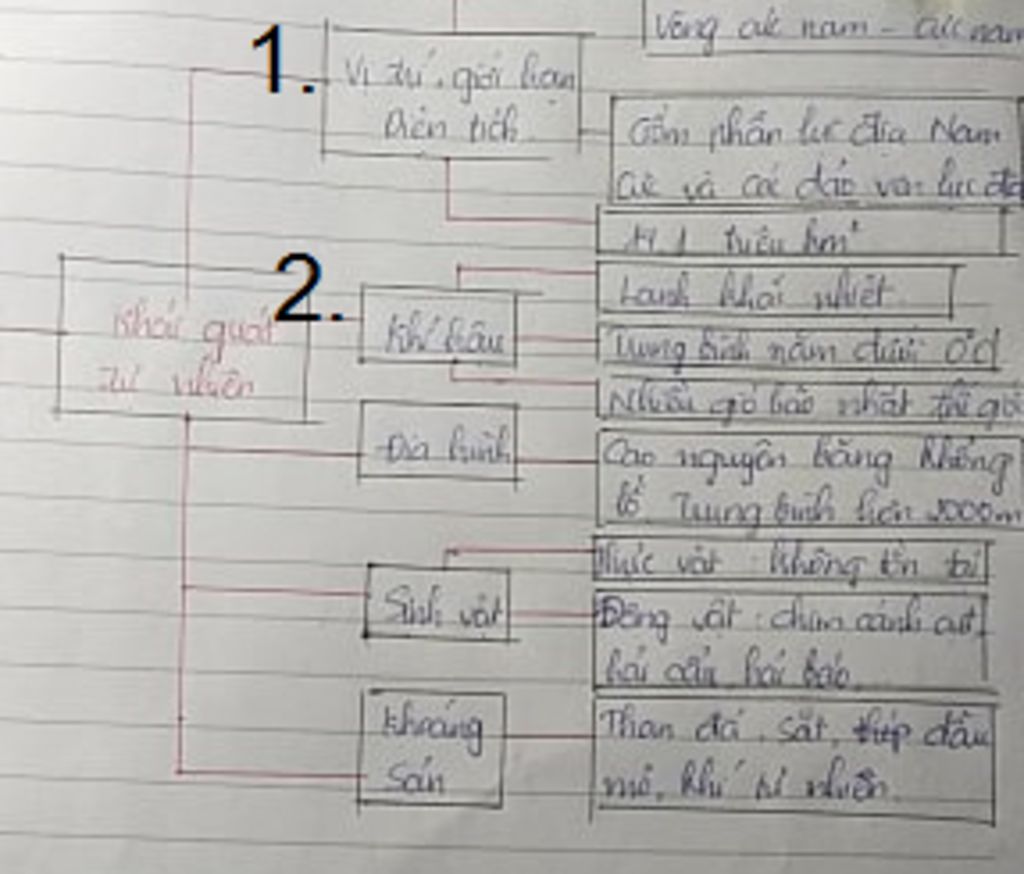 Vòng cực nam - cực nam
1.
Vị trí, giới hạn
Diện tích
Gồm phần lục địa Nam
cực và các đảo ven lục địa
14,1 triệu km²
2.
Khái quát
tự nhiên
Khí hậu
Lạnh khắc nhiệt
Trung bình năm dưới 0°C
Nhiều gió bão nhất thế giới
Địa hình
Cao nguyên băng khổng
lồ. Trung bình hơn 2000m
Sinh vật
Thực vật: không tồn tại
Động vật: chim cánh cụt,
hải cẩu, hải báo.
Khoáng
sản
Than đá, sắt, thép dầu
mỏ, khí tự nhiên.